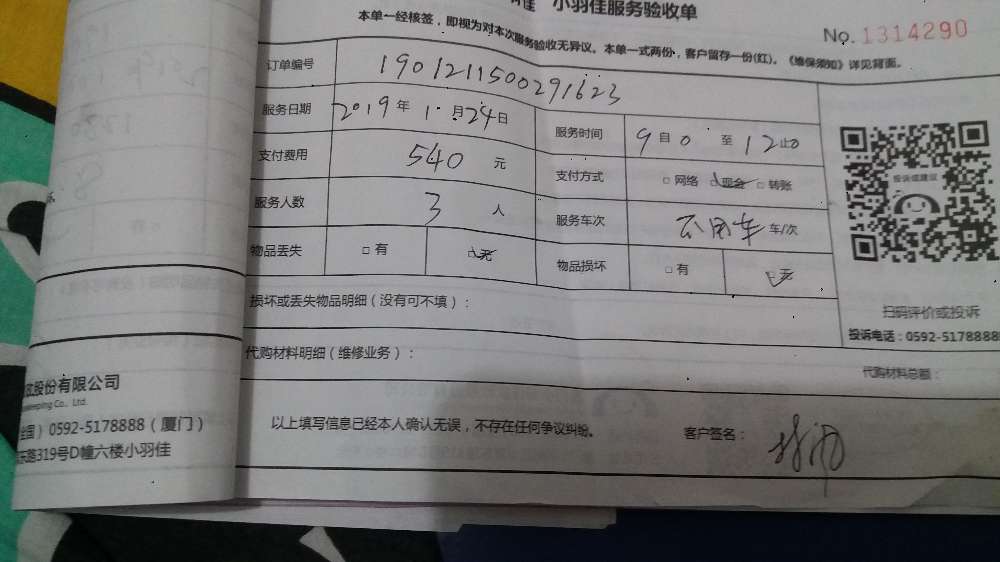 小羽佳服务验收单
本单一经核签，即视为对本次服务验收无异议。本单一式两份，客户留存一份(红)。《维保须知》详见背面。
No. 1314290
订单编号 1901211500291623
服务日期 2019年1月24日 服务时间 9自0至12止0
支付费用 540元 支付方式 □网络 □现金 □转账
服务人数 3人 服务车次 不用车 车/次
物品丢失 □有 □无 物品损坏 □有 □无
投诉或建议
扫码评价或投诉
投诉电话：0592-5178888
损坏或丢失物品明细（没有可不填）：
代购材料明细（维修业务）：
代购材料总额：
以上填写信息已经本人确认无误，不存在任何争议纠纷。 客户签名：
股份有限公司
Co., Ltd.
0592-5178888（厦门）
路319号D幢六楼小羽佳